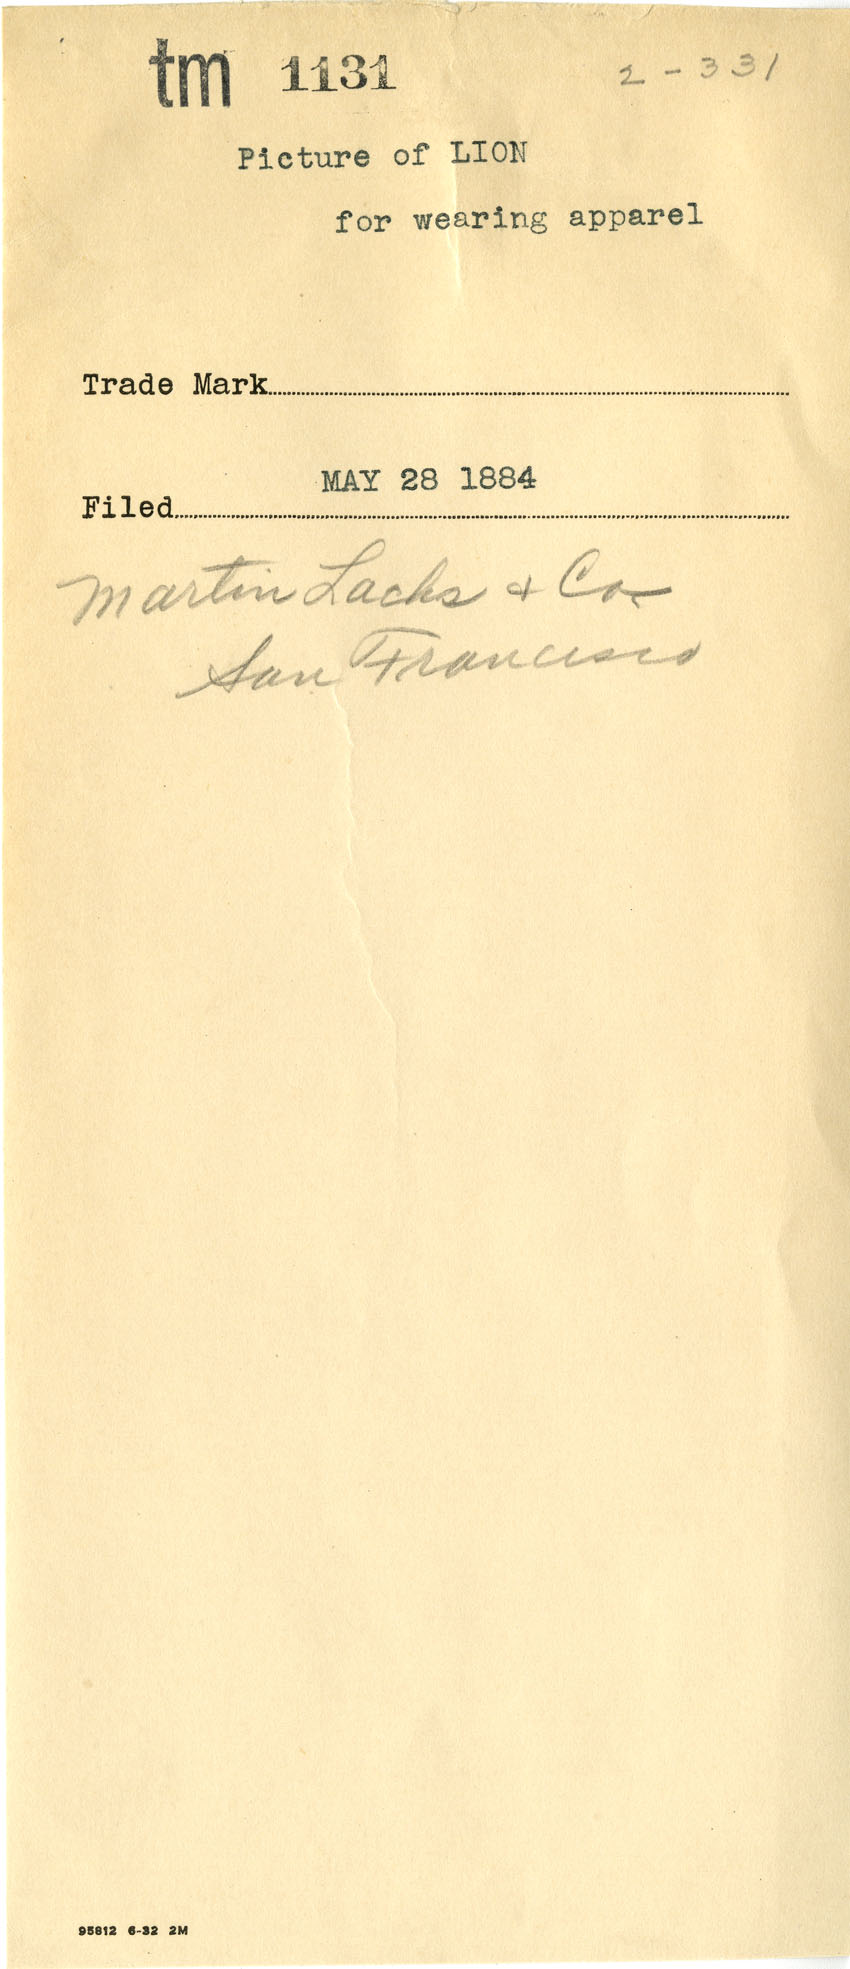 tm 1131 2-331
Picture of LION
for wearing apparel
Trade Mark
MAY 28 1884
Filed
Martin Lachs & Co.
San Francisco
95812 6-32 2M